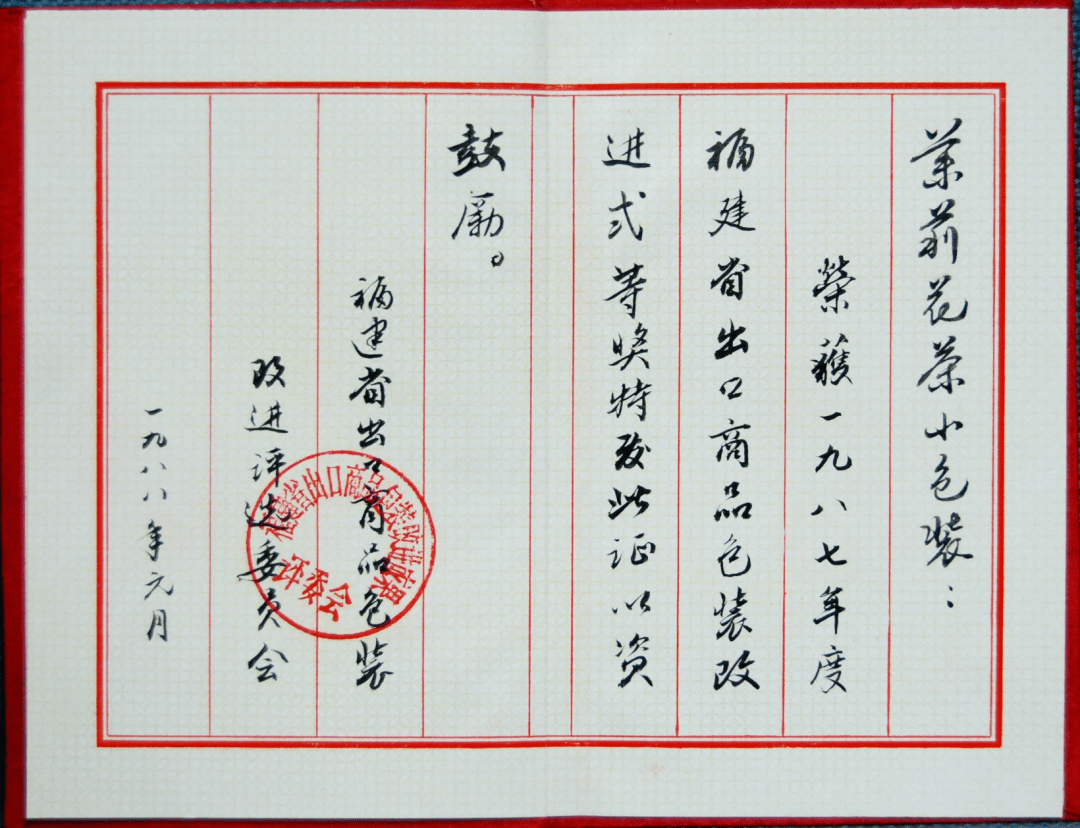 茉莉花茶小包装：
榮獲一九八七年度
福建省出口商品包装改
进弍等奖特发此证以资
鼓励。
福建省出口商品包装
改进评选委员会
一九八八年元月
福建省出口商品包装改进成果
评委会